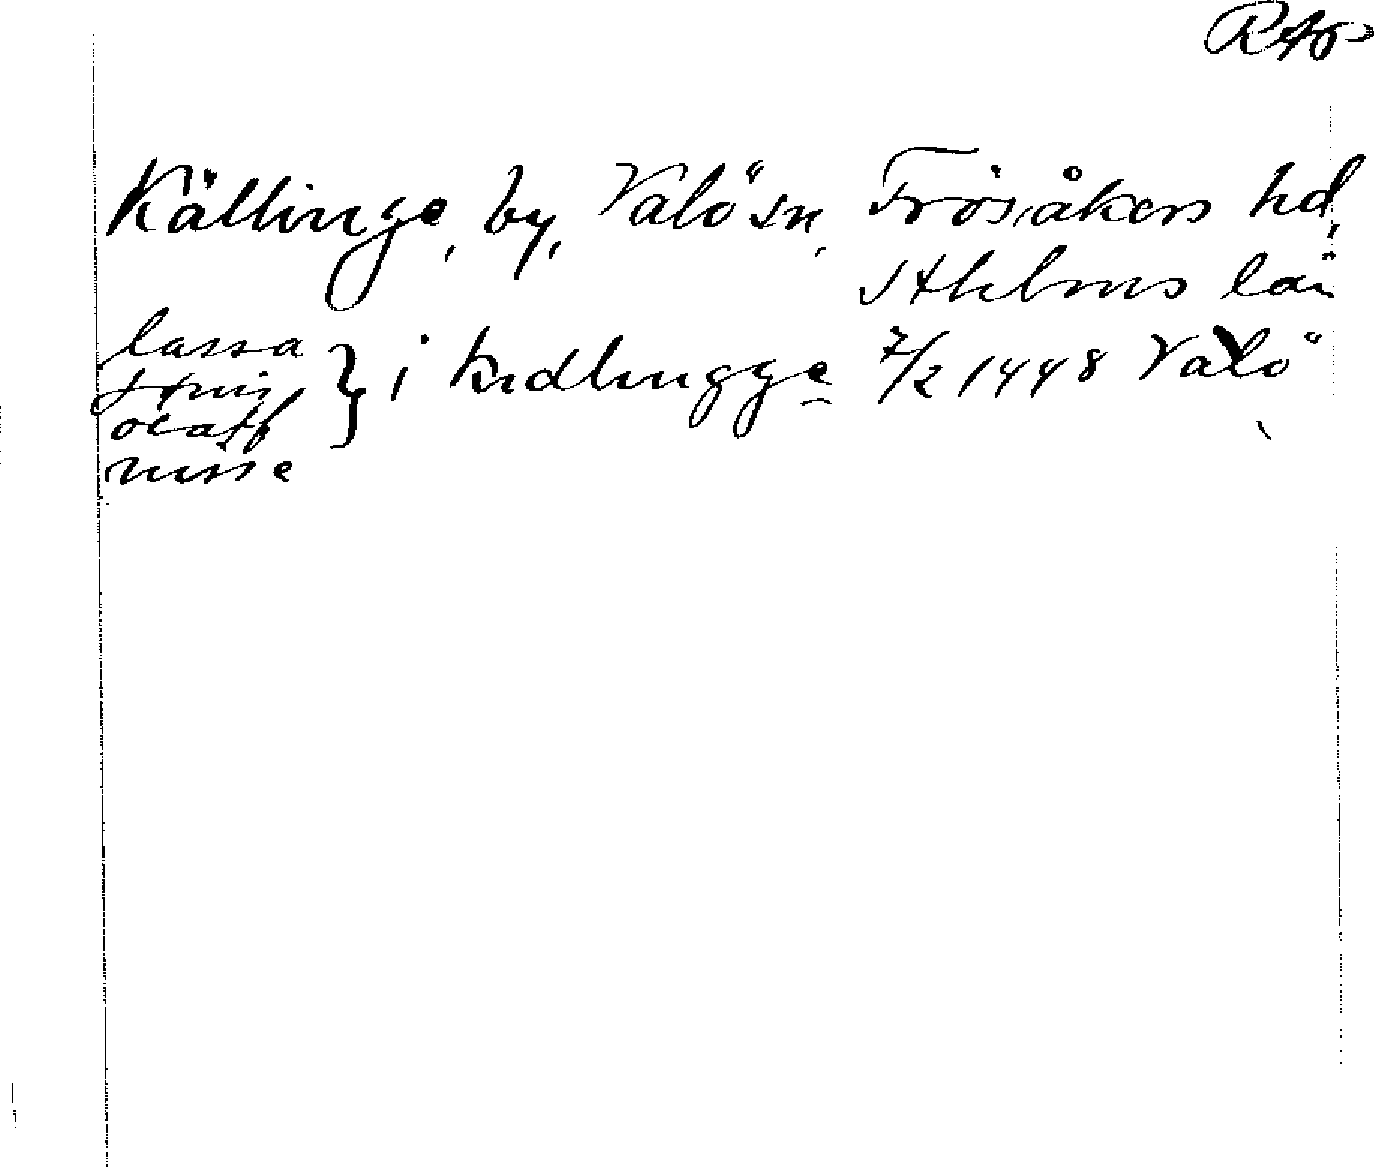 RAp
Källinge, by, Valö sn, Frösåkers hd,
Sthlms län
lassa
jönis
olaff
nisse
} i kædlingge 7/2 1448 Valö